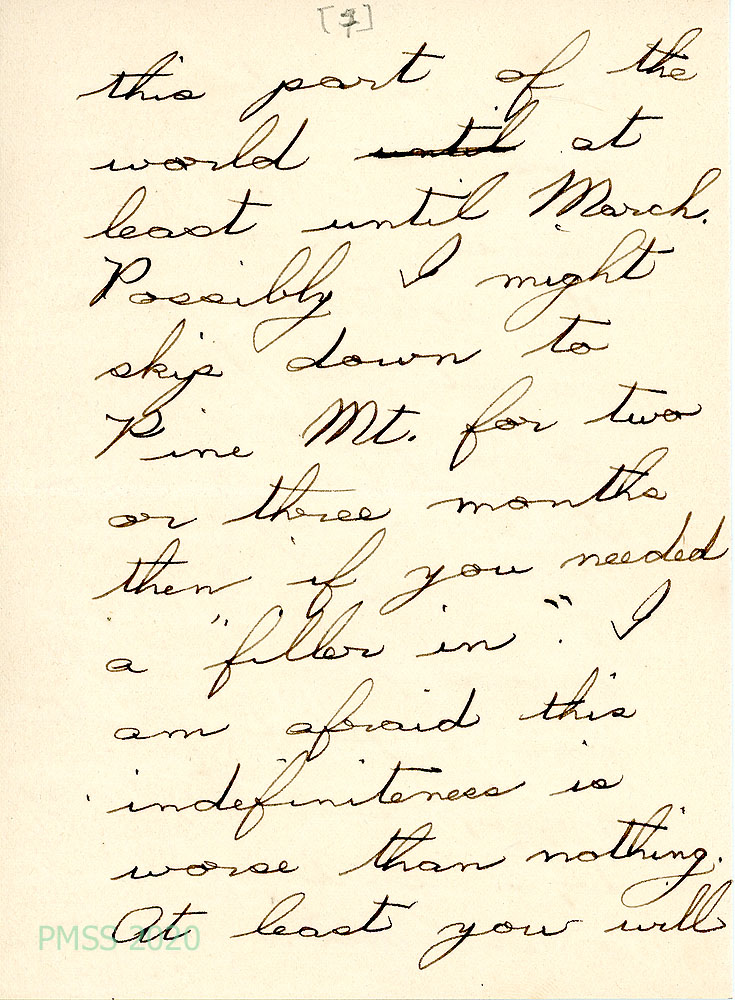 this part of the
world ~~until~~ at
least until March.
Possibly I might
skip down to
Pine Mt. for two
or three months
then if you needed
a "filler in". I
am afraid this
indefiniteness is
worse than nothing.
At least you will
PMSS 2020